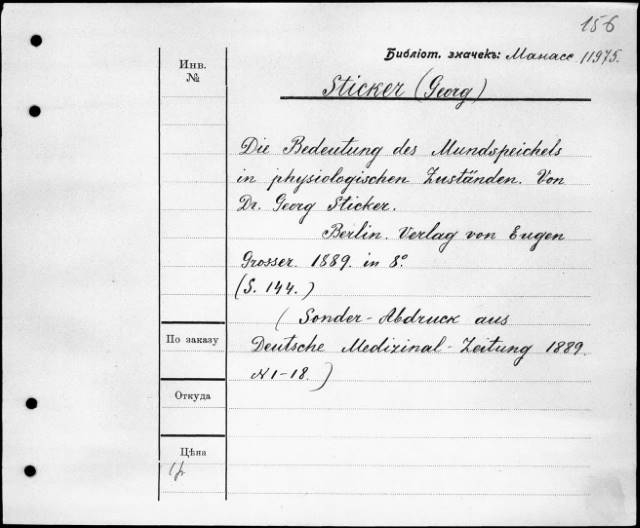 156
Библіот. значекъ: Манасс. 11975.
Инв.
№
Sticker (Georg)
Die Bedeutung des Mundspeichels
in physiologischen Zuständen. Von
Dr. Georg Sticker.
Berlin. Verlag von Eugen
Grosser. 1889. in 8°
(S. 144.)
( Sonder-Abdruck aus
Deutsche Medizinal-Zeitung 1889.
N 1-18. )
По заказу
Откуда
Цѣна